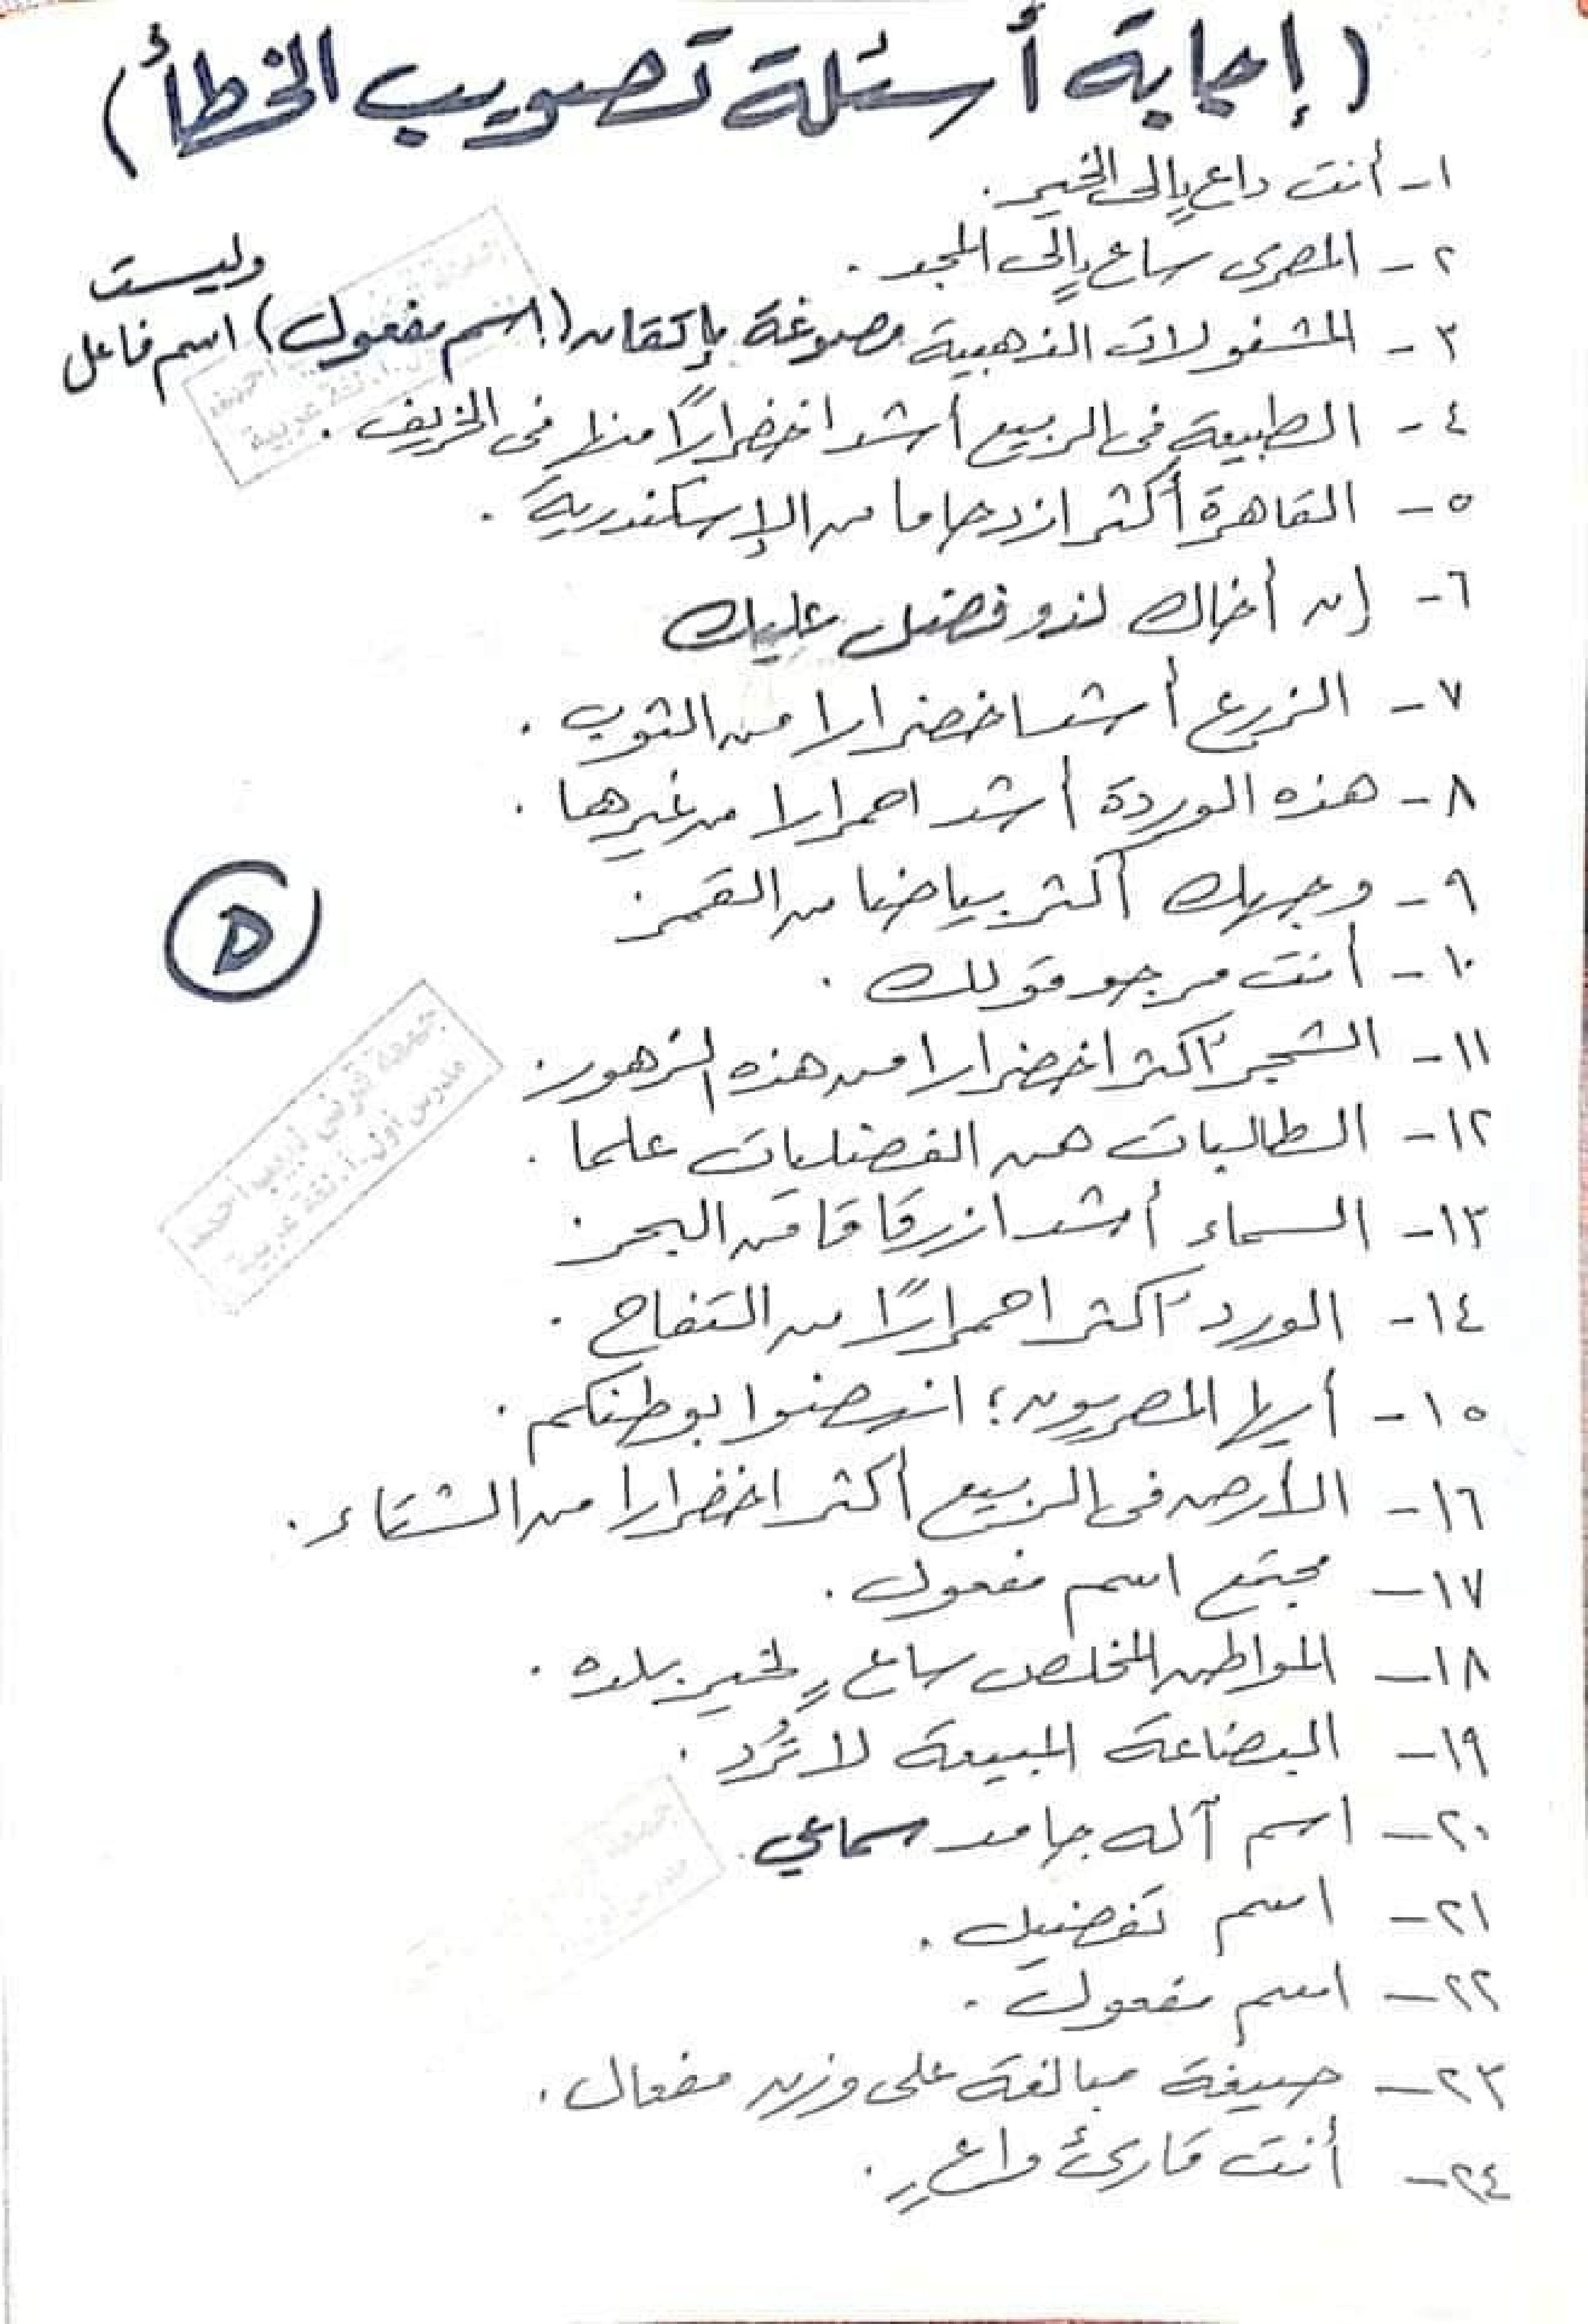 (إجابة أسئلة تصويب الخطأ)
١- أنت داعٍ إلى الخير.
٢- المصرى ساعٍ إلى المجد.
وليست
٣- المشغولات الذهبية مصوغة بإتقان (اسم مفعول) اسم فاعل
٤- الطبيعة فى الربيع أشد اخضرارًا منها فى الخريف.
٥- القاهرة أكثر ازدحاما من الإسكندرية.
٦- إن أخاك لذو فضل عليك
٧- الزرع أشد اخضرارا من الثوب.
٨- هذه الوردة أشد احمرارا من غيرها.
٩- وجهك أكثر بياضا من القمر.
١٠- أنت مرجو قولك.
١١- الشجر أكثر اخضرارا من هذه الزهور.
١٢- الطالبات هن الفضليات علما.
١٣- السماء أشد ازرقاقا من البحر.
١٤- الورد أكثر احمرارًا من التفاح.
١٥- أيها المصريون؛ انهضوا بوطنكم.
١٦- الأرض فى الربيع أكثر اخضرارا من الشتاء.
١٧- مجتمع اسم مفعول.
١٨- المواطن المخلص ساعٍ لخير بلده.
١٩- البضاعة المبيعة لا تُرد.
٢٠- اسم آله جامد سماعي.
٢١- اسم تفضيل.
٢٢- اسم مفعول.
٢٣- صيغة مبالغة على وزن مفعال.
٢٤- أنت قارئ واعٍ.